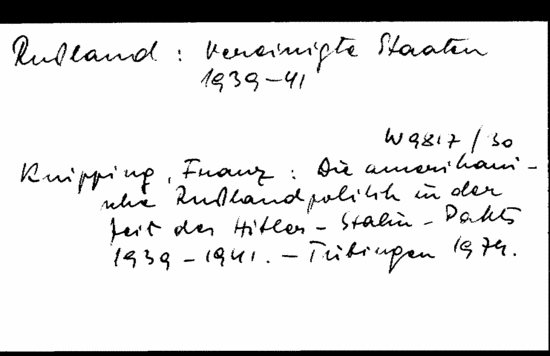 Rußland : Vereinigte Staaten
1939-41
W 9817 / 30
Knipping, Franz : Die amerikani-
sche Rußlandpolitik in der
Zeit des Hitler-Stalin-Pakts
1939-1941. - Tübingen 1974.